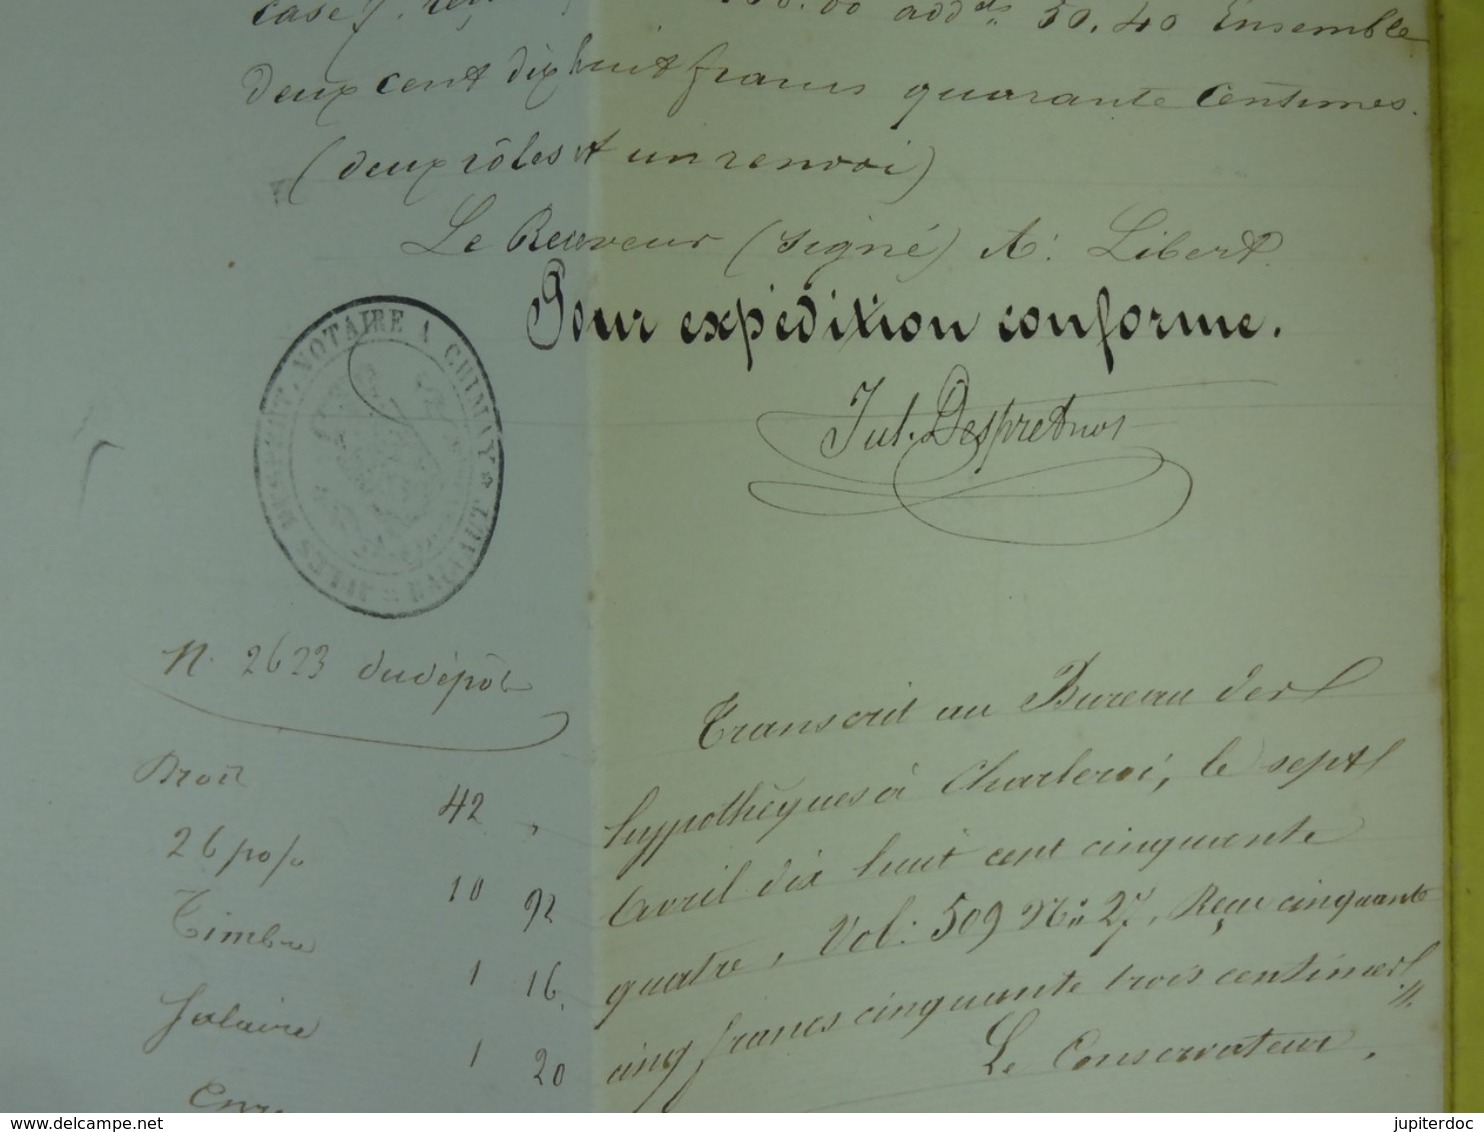 case 7. reçu add.ls 50.40 Ensemble
deux cent dix huit francs quarante centimes.
(deux rôles et un renvoi)
Le Receveur (signé) A: Libert
Pour expédition conforme.
Jul. Despret nos
JULES DESPRET, NOTAIRE A CHIMAY * HAINAUT =
N. 2623 du dépôt
Droit 42 "
26 p% 10 92
Timbre 1 16.
Salaire 1 20
Transcrit au Bureau des
hypothèques à Charleroi, le sept
avril dix huit cent cinquante
quatre, Vol: 509 No 27, Reçu cinquante
cinq francs cinquante trois centimes
Le Conservateur,
delcampe.net
jupiterdoc